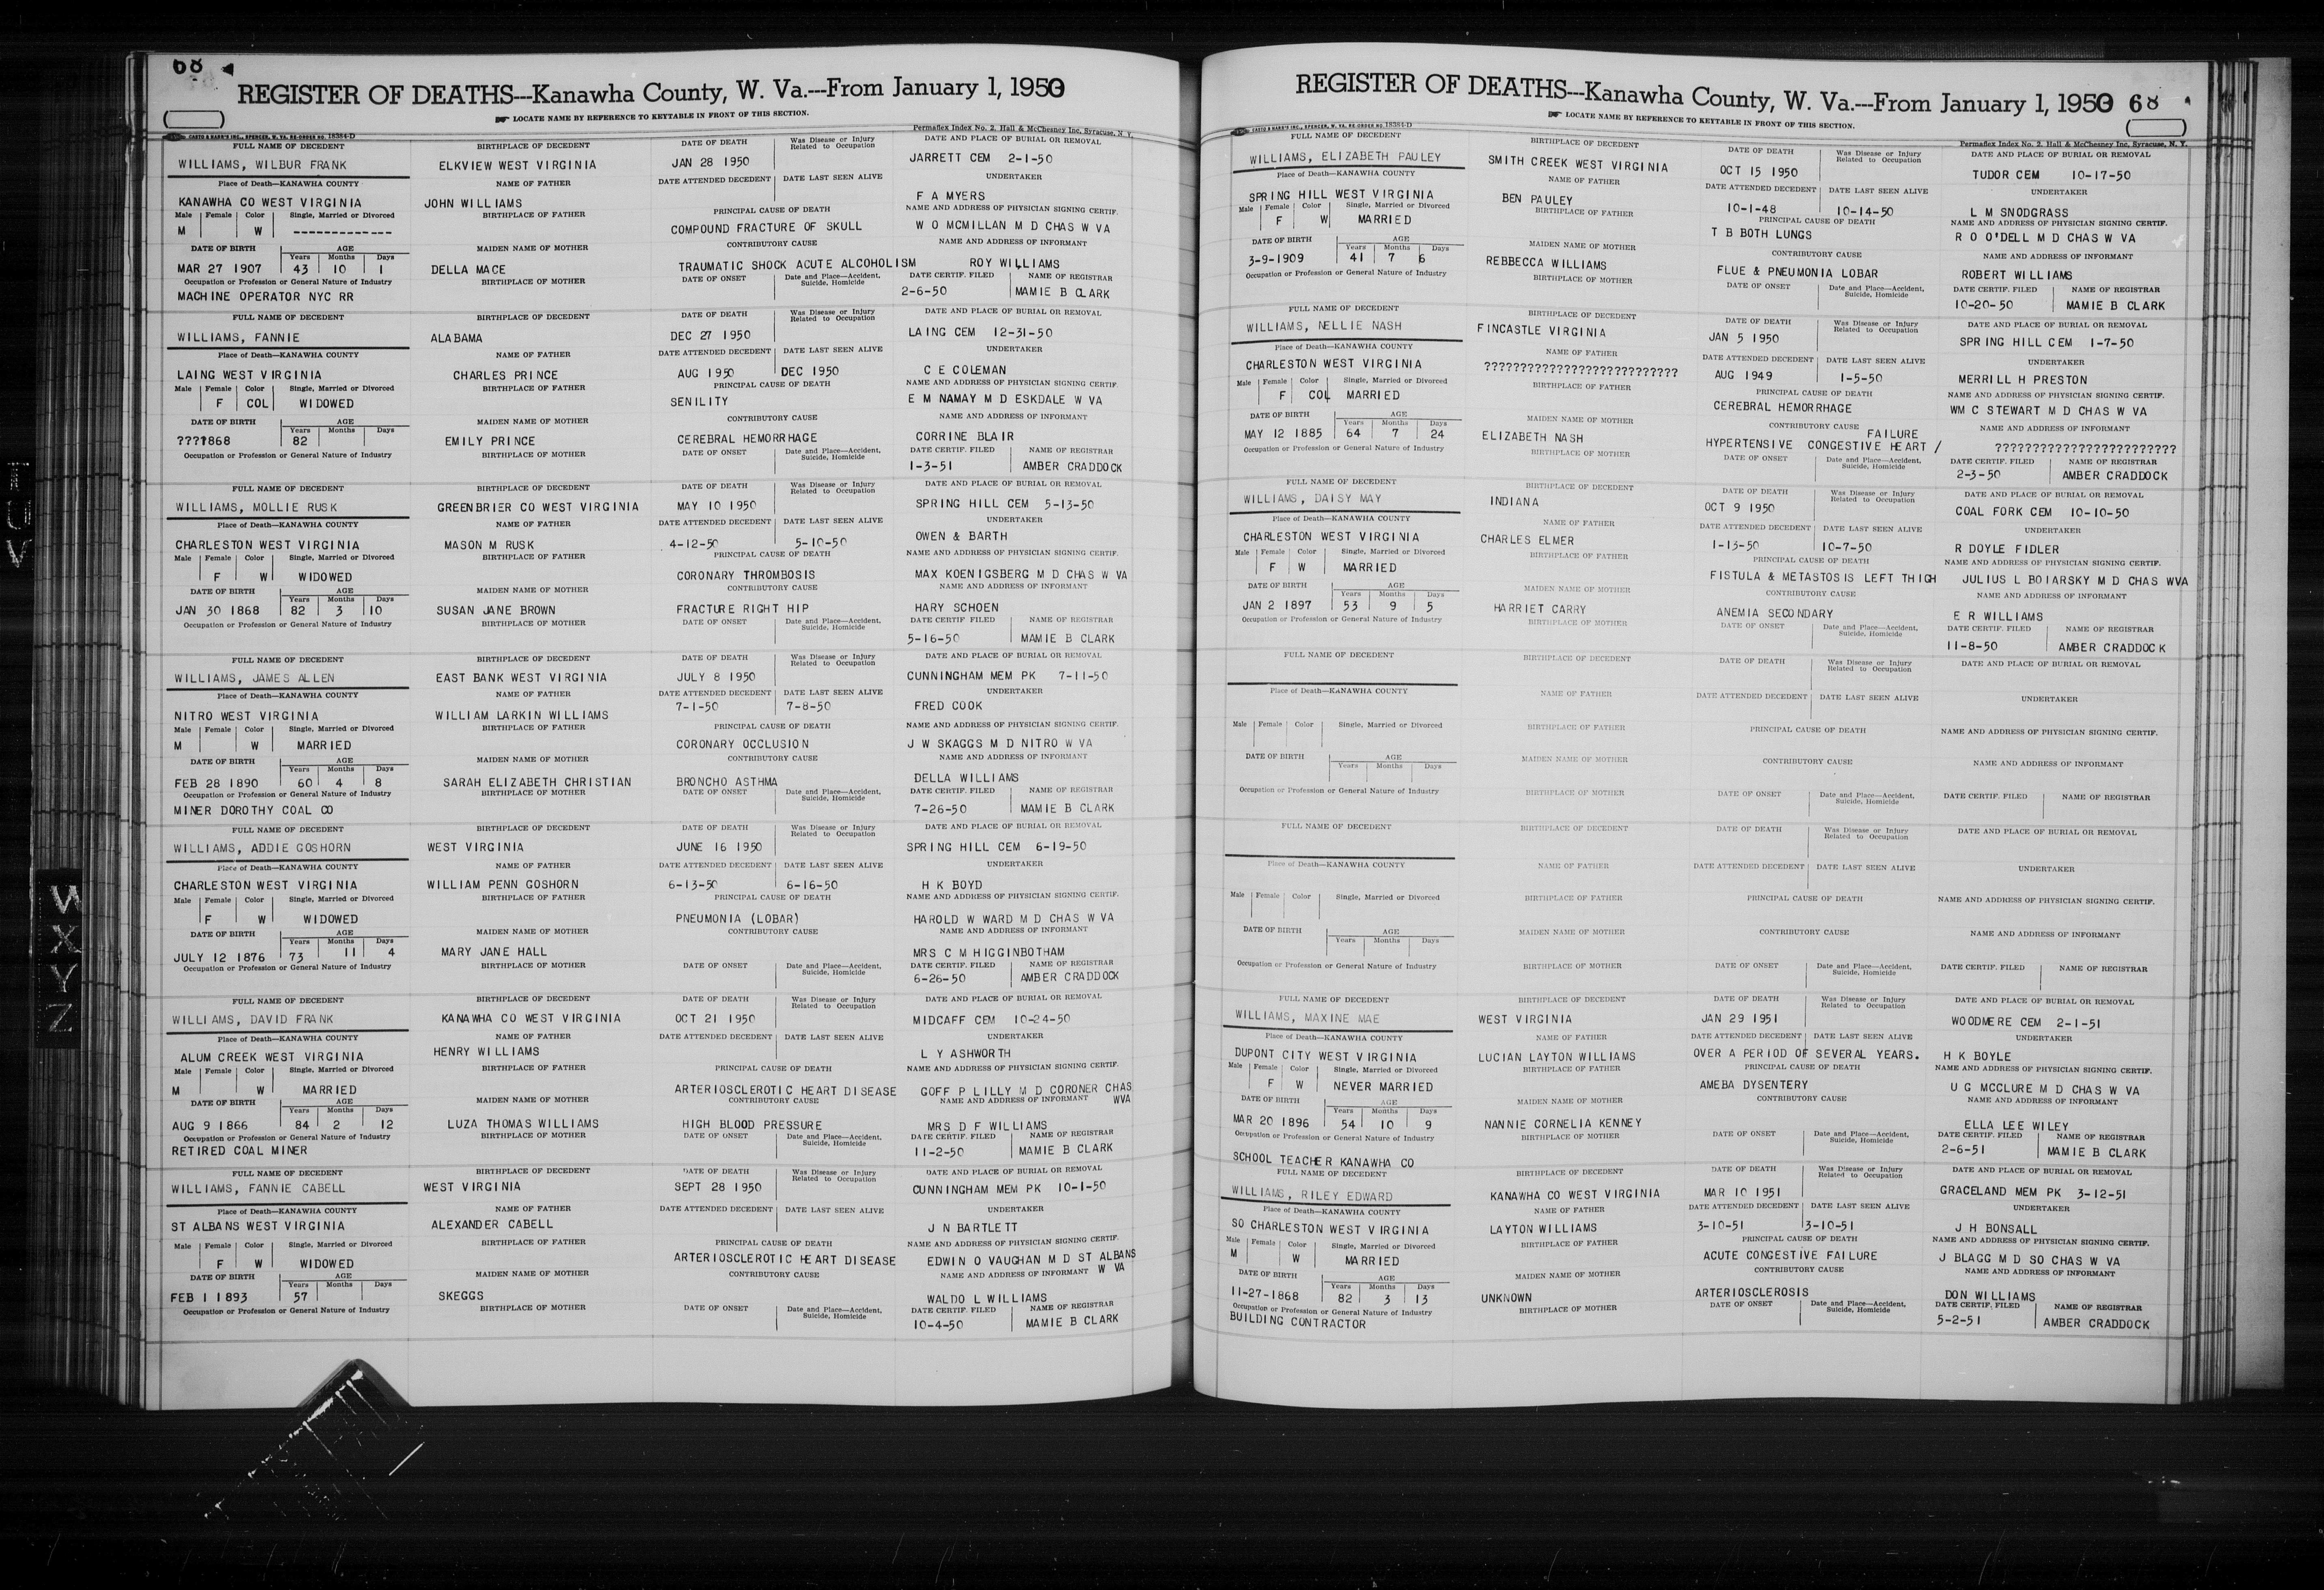 68
REGISTER OF DEATHS---Kanawha County, W. Va.---From January 1, 1950
LOCATE NAME BY REFERENCE TO KEYTABLE IN FRONT OF THIS SECTION.
CASTO & HARRIS INC., SPENCER, W. VA. RE-ORDER NO. 18384-D Permaflex Index No. 2, Hall & McChesney Inc, Syracuse, N. Y.
FULL NAME OF DECEDENT BIRTHPLACE OF DECEDENT DATE OF DEATH Was Disease or Injury Related to Occupation DATE AND PLACE OF BURIAL OR REMOVAL
WILLIAMS, WILBUR FRANK ELKVIEW WEST VIRGINIA JAN 28 1950 JARRETT CEM 2-1-50
Place of Death—KANAWHA COUNTY NAME OF FATHER DATE ATTENDED DECEDENT DATE LAST SEEN ALIVE UNDERTAKER
KANAWHA CO WEST VIRGINIA JOHN WILLIAMS F A MYERS
Male Female Color Single, Married or Divorced BIRTHPLACE OF FATHER PRINCIPAL CAUSE OF DEATH NAME AND ADDRESS OF PHYSICIAN SIGNING CERTIF.
M W ------------- COMPOUND FRACTURE OF SKULL W O MCMILLAN M D CHAS W VA
DATE OF BIRTH AGE Years Months Days MAIDEN NAME OF MOTHER CONTRIBUTORY CAUSE NAME AND ADDRESS OF INFORMANT
MAR 27 1907 43 10 1 DELLA MACE TRAUMATIC SHOCK ACUTE ALCOHOLISM ROY WILLIAMS
Occupation or Profession or General Nature of Industry BIRTHPLACE OF MOTHER DATE OF ONSET Date and Place—Accident, Suicide, Homicide DATE CERTIF. FILED NAME OF REGISTRAR
MACHINE OPERATOR NYC RR 2-6-50 MAMIE B CLARK
FULL NAME OF DECEDENT BIRTHPLACE OF DECEDENT DATE OF DEATH Was Disease or Injury Related to Occupation DATE AND PLACE OF BURIAL OR REMOVAL
WILLIAMS, FANNIE ALABAMA DEC 27 1950 LAING CEM 12-31-50
Place of Death—KANAWHA COUNTY NAME OF FATHER DATE ATTENDED DECEDENT DATE LAST SEEN ALIVE UNDERTAKER
LAING WEST VIRGINIA CHARLES PRINCE AUG 1950 DEC 1950 C E COLEMAN
Male Female Color Single, Married or Divorced BIRTHPLACE OF FATHER PRINCIPAL CAUSE OF DEATH NAME AND ADDRESS OF PHYSICIAN SIGNING CERTIF.
F COL WIDOWED SENILITY E M NAMAY M D ESKDALE W VA
DATE OF BIRTH AGE Years Months Days MAIDEN NAME OF MOTHER CONTRIBUTORY CAUSE NAME AND ADDRESS OF INFORMANT
????1868 82 EMILY PRINCE CEREBRAL HEMORRHAGE CORRINE BLAIR
Occupation or Profession or General Nature of Industry BIRTHPLACE OF MOTHER DATE OF ONSET Date and Place—Accident, Suicide, Homicide DATE CERTIF. FILED NAME OF REGISTRAR
1-3-51 AMBER CRADDOCK
FULL NAME OF DECEDENT BIRTHPLACE OF DECEDENT DATE OF DEATH Was Disease or Injury Related to Occupation DATE AND PLACE OF BURIAL OR REMOVAL
WILLIAMS, MOLLIE RUSK GREENBRIER CO WEST VIRGINIA MAY 10 1950 SPRING HILL CEM 5-13-50
Place of Death—KANAWHA COUNTY NAME OF FATHER DATE ATTENDED DECEDENT DATE LAST SEEN ALIVE UNDERTAKER
CHARLESTON WEST VIRGINIA MASON M RUSK 4-12-50 5-10-50 OWEN & BARTH
Male Female Color Single, Married or Divorced BIRTHPLACE OF FATHER PRINCIPAL CAUSE OF DEATH NAME AND ADDRESS OF PHYSICIAN SIGNING CERTIF.
F W WIDOWED CORONARY THROMBOSIS MAX KOENIGSBERG M D CHAS W VA
DATE OF BIRTH AGE Years Months Days MAIDEN NAME OF MOTHER CONTRIBUTORY CAUSE NAME AND ADDRESS OF INFORMANT
JAN 30 1868 82 3 10 SUSAN JANE BROWN FRACTURE RIGHT HIP HARY SCHOEN
Occupation or Profession or General Nature of Industry BIRTHPLACE OF MOTHER DATE OF ONSET Date and Place—Accident, Suicide, Homicide DATE CERTIF. FILED NAME OF REGISTRAR
5-16-50 MAMIE B CLARK
FULL NAME OF DECEDENT BIRTHPLACE OF DECEDENT DATE OF DEATH Was Disease or Injury Related to Occupation DATE AND PLACE OF BURIAL OR REMOVAL
WILLIAMS, JAMES ALLEN EAST BANK WEST VIRGINIA JULY 8 1950 CUNNINGHAM MEM PK 7-11-50
Place of Death—KANAWHA COUNTY NAME OF FATHER DATE ATTENDED DECEDENT DATE LAST SEEN ALIVE UNDERTAKER
NITRO WEST VIRGINIA WILLIAM LARKIN WILLIAMS 7-1-50 7-8-50 FRED COOK
Male Female Color Single, Married or Divorced BIRTHPLACE OF FATHER PRINCIPAL CAUSE OF DEATH NAME AND ADDRESS OF PHYSICIAN SIGNING CERTIF.
M W MARRIED CORONARY OCCLUSION J W SKAGGS M D NITRO W VA
DATE OF BIRTH AGE Years Months Days MAIDEN NAME OF MOTHER CONTRIBUTORY CAUSE NAME AND ADDRESS OF INFORMANT
FEB 28 1890 60 4 8 SARAH ELIZABETH CHRISTIAN BRONCHO ASTHMA DELLA WILLIAMS
Occupation or Profession or General Nature of Industry BIRTHPLACE OF MOTHER DATE OF ONSET Date and Place—Accident, Suicide, Homicide DATE CERTIF. FILED NAME OF REGISTRAR
MINER DOROTHY COAL CO 7-26-50 MAMIE B CLARK
FULL NAME OF DECEDENT BIRTHPLACE OF DECEDENT DATE OF DEATH Was Disease or Injury Related to Occupation DATE AND PLACE OF BURIAL OR REMOVAL
WILLIAMS, ADDIE GOSHORN WEST VIRGINIA JUNE 16 1950 SPRING HILL CEM 6-19-50
Place of Death—KANAWHA COUNTY NAME OF FATHER DATE ATTENDED DECEDENT DATE LAST SEEN ALIVE UNDERTAKER
CHARLESTON WEST VIRGINIA WILLIAM PENN GOSHORN 6-13-50 6-16-50 H K BOYD
Male Female Color Single, Married or Divorced BIRTHPLACE OF FATHER PRINCIPAL CAUSE OF DEATH NAME AND ADDRESS OF PHYSICIAN SIGNING CERTIF.
F W WIDOWED PNEUMONIA (LOBAR) HAROLD W WARD M D CHAS W VA
DATE OF BIRTH AGE Years Months Days MAIDEN NAME OF MOTHER CONTRIBUTORY CAUSE NAME AND ADDRESS OF INFORMANT
JULY 12 1876 73 11 4 MARY JANE HALL MRS C M HIGGINBOTHAM
Occupation or Profession or General Nature of Industry BIRTHPLACE OF MOTHER DATE OF ONSET Date and Place—Accident, Suicide, Homicide DATE CERTIF. FILED NAME OF REGISTRAR
6-26-50 AMBER CRADDOCK
FULL NAME OF DECEDENT BIRTHPLACE OF DECEDENT DATE OF DEATH Was Disease or Injury Related to Occupation DATE AND PLACE OF BURIAL OR REMOVAL
WILLIAMS, DAVID FRANK KANAWHA CO WEST VIRGINIA OCT 21 1950 MIDCAFF CEM 10-24-50
Place of Death—KANAWHA COUNTY NAME OF FATHER DATE ATTENDED DECEDENT DATE LAST SEEN ALIVE UNDERTAKER
ALUM CREEK WEST VIRGINIA HENRY WILLIAMS L Y ASHWORTH
Male Female Color Single, Married or Divorced BIRTHPLACE OF FATHER PRINCIPAL CAUSE OF DEATH NAME AND ADDRESS OF PHYSICIAN SIGNING CERTIF.
M W MARRIED ARTERIOSCLEROTIC HEART DISEASE GOFF P LILLY M D CORONER CHAS WVA
DATE OF BIRTH AGE Years Months Days MAIDEN NAME OF MOTHER CONTRIBUTORY CAUSE NAME AND ADDRESS OF INFORMANT
AUG 9 1866 84 2 12 LUZA THOMAS WILLIAMS HIGH BLOOD PRESSURE MRS D F WILLIAMS
Occupation or Profession or General Nature of Industry BIRTHPLACE OF MOTHER DATE OF ONSET Date and Place—Accident, Suicide, Homicide DATE CERTIF. FILED NAME OF REGISTRAR
RETIRED COAL MINER 11-2-50 MAMIE B CLARK
FULL NAME OF DECEDENT BIRTHPLACE OF DECEDENT DATE OF DEATH Was Disease or Injury Related to Occupation DATE AND PLACE OF BURIAL OR REMOVAL
WILLIAMS, FANNIE CABELL WEST VIRGINIA SEPT 28 1950 CUNNINGHAM MEM PK 10-1-50
Place of Death—KANAWHA COUNTY NAME OF FATHER DATE ATTENDED DECEDENT DATE LAST SEEN ALIVE UNDERTAKER
ST ALBANS WEST VIRGINIA ALEXANDER CABELL J N BARTLETT
Male Female Color Single, Married or Divorced BIRTHPLACE OF FATHER PRINCIPAL CAUSE OF DEATH NAME AND ADDRESS OF PHYSICIAN SIGNING CERTIF.
F W WIDOWED ARTERIOSCLEROTIC HEART DISEASE EDWIN O VAUGHAN M D ST ALBANS W VA
DATE OF BIRTH AGE Years Months Days MAIDEN NAME OF MOTHER CONTRIBUTORY CAUSE NAME AND ADDRESS OF INFORMANT
FEB 1 1893 57 SKEGGS WALDO L WILLIAMS
Occupation or Profession or General Nature of Industry BIRTHPLACE OF MOTHER DATE OF ONSET Date and Place—Accident, Suicide, Homicide DATE CERTIF. FILED NAME OF REGISTRAR
10-4-50 MAMIE B CLARK
W
X
Y
Z
REGISTER OF DEATHS---Kanawha County, W. Va.---From January 1, 1950 68
LOCATE NAME BY REFERENCE TO KEYTABLE IN FRONT OF THIS SECTION.
CASTO & HARRIS INC., SPENCER, W. VA. RE-ORDER NO. 18384-D Permaflex Index No. 2, Hall & McChesney Inc, Syracuse, N. Y.
FULL NAME OF DECEDENT BIRTHPLACE OF DECEDENT DATE OF DEATH Was Disease or Injury Related to Occupation DATE AND PLACE OF BURIAL OR REMOVAL
WILLIAMS, ELIZABETH PAULEY SMITH CREEK WEST VIRGINIA OCT 15 1950 TUDOR CEM 10-17-50
Place of Death—KANAWHA COUNTY NAME OF FATHER DATE ATTENDED DECEDENT DATE LAST SEEN ALIVE UNDERTAKER
SPRING HILL WEST VIRGINIA BEN PAULEY 10-1-48 10-14-50 L M SNODGRASS
Male Female Color Single, Married or Divorced BIRTHPLACE OF FATHER PRINCIPAL CAUSE OF DEATH NAME AND ADDRESS OF PHYSICIAN SIGNING CERTIF.
F W MARRIED T B BOTH LUNGS R O O'DELL M D CHAS W VA
DATE OF BIRTH AGE Years Months Days MAIDEN NAME OF MOTHER CONTRIBUTORY CAUSE NAME AND ADDRESS OF INFORMANT
3-9-1909 41 7 6 REBBECCA WILLIAMS FLUE & PNEUMONIA LOBAR ROBERT WILLIAMS
Occupation or Profession or General Nature of Industry BIRTHPLACE OF MOTHER DATE OF ONSET Date and Place—Accident, Suicide, Homicide DATE CERTIF. FILED NAME OF REGISTRAR
10-20-50 MAMIE B CLARK
FULL NAME OF DECEDENT BIRTHPLACE OF DECEDENT DATE OF DEATH Was Disease or Injury Related to Occupation DATE AND PLACE OF BURIAL OR REMOVAL
WILLIAMS, NELLIE NASH FINCASTLE VIRGINIA JAN 5 1950 SPR ING HILL CEM 1-7-50
Place of Death—KANAWHA COUNTY NAME OF FATHER DATE ATTENDED DECEDENT DATE LAST SEEN ALIVE UNDERTAKER
CHARLESTON WEST VIRGINIA ??????????????????????????? AUG 1949 1-5-50 MERRILL H PRESTON
Male Female Color Single, Married or Divorced BIRTHPLACE OF FATHER PRINCIPAL CAUSE OF DEATH NAME AND ADDRESS OF PHYSICIAN SIGNING CERTIF.
F COL MARRIED CEREBRAL HEMORRHAGE WM C STEWART M D CHAS W VA
DATE OF BIRTH AGE Years Months Days MAIDEN NAME OF MOTHER CONTRIBUTORY CAUSE NAME AND ADDRESS OF INFORMANT
MAY 12 1885 64 7 24 ELIZABETH NASH HYPERTENSIVE CONGESTIVE HEART / FAILURE ?????????????????????????
Occupation or Profession or General Nature of Industry BIRTHPLACE OF MOTHER DATE OF ONSET Date and Place—Accident, Suicide, Homicide DATE CERTIF. FILED NAME OF REGISTRAR
2-3-50 AMBER CRADDOCK
FULL NAME OF DECEDENT BIRTHPLACE OF DECEDENT DATE OF DEATH Was Disease or Injury Related to Occupation DATE AND PLACE OF BURIAL OR REMOVAL
WILLIAMS, DAISY MAY INDIANA OCT 9 1950 COAL FORK CEM 10-10-50
Place of Death—KANAWHA COUNTY NAME OF FATHER DATE ATTENDED DECEDENT DATE LAST SEEN ALIVE UNDERTAKER
CHARLESTON WEST VIRGINIA CHARLES ELMER 1-13-50 10-7-50 R DOYLE FIDLER
Male Female Color Single, Married or Divorced BIRTHPLACE OF FATHER PRINCIPAL CAUSE OF DEATH NAME AND ADDRESS OF PHYSICIAN SIGNING CERTIF.
F W MARRIED FISTULA & METASTOSIS LEFT THIGH JULIUS L BOIARSKY M D CHAS WVA
DATE OF BIRTH AGE Years Months Days MAIDEN NAME OF MOTHER CONTRIBUTORY CAUSE NAME AND ADDRESS OF INFORMANT
JAN 2 1897 53 9 5 HARRIET CARRY ANEMIA SECONDARY E R WILLIAMS
Occupation or Profession or General Nature of Industry BIRTHPLACE OF MOTHER DATE OF ONSET Date and Place—Accident, Suicide, Homicide DATE CERTIF. FILED NAME OF REGISTRAR
11-8-50 AMBER CRADDOCK
FULL NAME OF DECEDENT BIRTHPLACE OF DECEDENT DATE OF DEATH Was Disease or Injury Related to Occupation DATE AND PLACE OF BURIAL OR REMOVAL
Place of Death—KANAWHA COUNTY NAME OF FATHER DATE ATTENDED DECEDENT DATE LAST SEEN ALIVE UNDERTAKER
Male Female Color Single, Married or Divorced BIRTHPLACE OF FATHER PRINCIPAL CAUSE OF DEATH NAME AND ADDRESS OF PHYSICIAN SIGNING CERTIF.
DATE OF BIRTH AGE Years Months Days MAIDEN NAME OF MOTHER CONTRIBUTORY CAUSE NAME AND ADDRESS OF INFORMANT
Occupation or Profession or General Nature of Industry BIRTHPLACE OF MOTHER DATE OF ONSET Date and Place—Accident, Suicide, Homicide DATE CERTIF. FILED NAME OF REGISTRAR
FULL NAME OF DECEDENT BIRTHPLACE OF DECEDENT DATE OF DEATH Was Disease or Injury Related to Occupation DATE AND PLACE OF BURIAL OR REMOVAL
Place of Death—KANAWHA COUNTY NAME OF FATHER DATE ATTENDED DECEDENT DATE LAST SEEN ALIVE UNDERTAKER
Male Female Color Single, Married or Divorced BIRTHPLACE OF FATHER PRINCIPAL CAUSE OF DEATH NAME AND ADDRESS OF PHYSICIAN SIGNING CERTIF.
DATE OF BIRTH AGE Years Months Days MAIDEN NAME OF MOTHER CONTRIBUTORY CAUSE NAME AND ADDRESS OF INFORMANT
Occupation or Profession or General Nature of Industry BIRTHPLACE OF MOTHER DATE OF ONSET Date and Place—Accident, Suicide, Homicide DATE CERTIF. FILED NAME OF REGISTRAR
FULL NAME OF DECEDENT BIRTHPLACE OF DECEDENT DATE OF DEATH Was Disease or Injury Related to Occupation DATE AND PLACE OF BURIAL OR REMOVAL
WILLIAMS, MAXINE MAE WEST VIRGINIA JAN 29 1951 WOODMERE CEM 2-1-51
Place of Death—KANAWHA COUNTY NAME OF FATHER DATE ATTENDED DECEDENT DATE LAST SEEN ALIVE UNDERTAKER
DUPONT CITY WEST VIRGINIA LUCIAN LAYTON WILLIAMS OVER A PERIOD OF SEVERAL YEARS. H K BOYLE
Male Female Color Single, Married or Divorced BIRTHPLACE OF FATHER PRINCIPAL CAUSE OF DEATH NAME AND ADDRESS OF PHYSICIAN SIGNING CERTIF.
F W NEVER MARRIED AMEBA DYSENTERY U G MCCLURE M D CHAS W VA
DATE OF BIRTH AGE Years Months Days MAIDEN NAME OF MOTHER CONTRIBUTORY CAUSE NAME AND ADDRESS OF INFORMANT
MAR 20 1896 54 10 9 NANNIE CORNELIA KENNEY ELLA LEE WILEY
Occupation or Profession or General Nature of Industry BIRTHPLACE OF MOTHER DATE OF ONSET Date and Place—Accident, Suicide, Homicide DATE CERTIF. FILED NAME OF REGISTRAR
SCHOOL TEACHER KANAWHA CO 2-6-51 MAMIE B CLARK
FULL NAME OF DECEDENT BIRTHPLACE OF DECEDENT DATE OF DEATH Was Disease or Injury Related to Occupation DATE AND PLACE OF BURIAL OR REMOVAL
WILLIAMS, RILEY EDWARD KANAWHA CO WEST VIRGINIA MAR 10 1951 GRACELAND MEM PK 3-12-51
Place of Death—KANAWHA COUNTY NAME OF FATHER DATE ATTENDED DECEDENT DATE LAST SEEN ALIVE UNDERTAKER
SO CHARLESTON WEST VIRGINIA LAYTON WILLIAMS 3-10-51 3-10-51 J H BONSALL
Male Female Color Single, Married or Divorced BIRTHPLACE OF FATHER PRINCIPAL CAUSE OF DEATH NAME AND ADDRESS OF PHYSICIAN SIGNING CERTIF.
M W MARRIED ACUTE CONGESTIVE FAILURE J BLAGG M D SO CHAS W VA
DATE OF BIRTH AGE Years Months Days MAIDEN NAME OF MOTHER CONTRIBUTORY CAUSE NAME AND ADDRESS OF INFORMANT
11-27-1868 82 3 13 UNKNOWN ARTERIOSCLEROSIS DON WILLIAMS
Occupation or Profession or General Nature of Industry BIRTHPLACE OF MOTHER DATE OF ONSET Date and Place—Accident, Suicide, Homicide DATE CERTIF. FILED NAME OF REGISTRAR
BUILDING CONTRACTOR 5-2-51 AMBER CRADDOCK